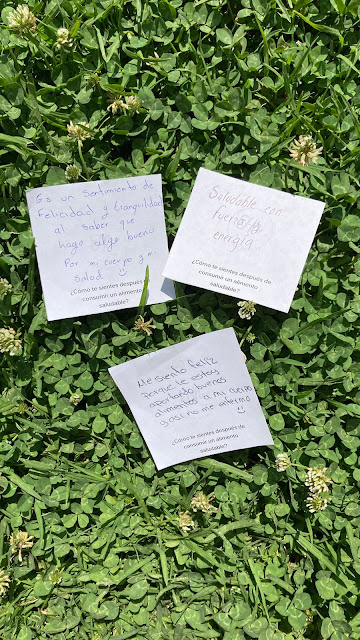 Es un sentimiento de
Felicidad y tranquilidad
al saber que
hago algo bueno
Por mi cuerpo y mi
salud
¿Cómo te sientes después de
consumir un alimento
saludable?
Saludable con
fuerza y
energía
¿Cómo te sientes después de
consumir un alimento
saludable?
Me siento feliz
porque le estoy
aportando buenos
alimentos a mi cuerpo
y así no me enfermo
¿Cómo te sientes después de
consumir un alimento
saludable?